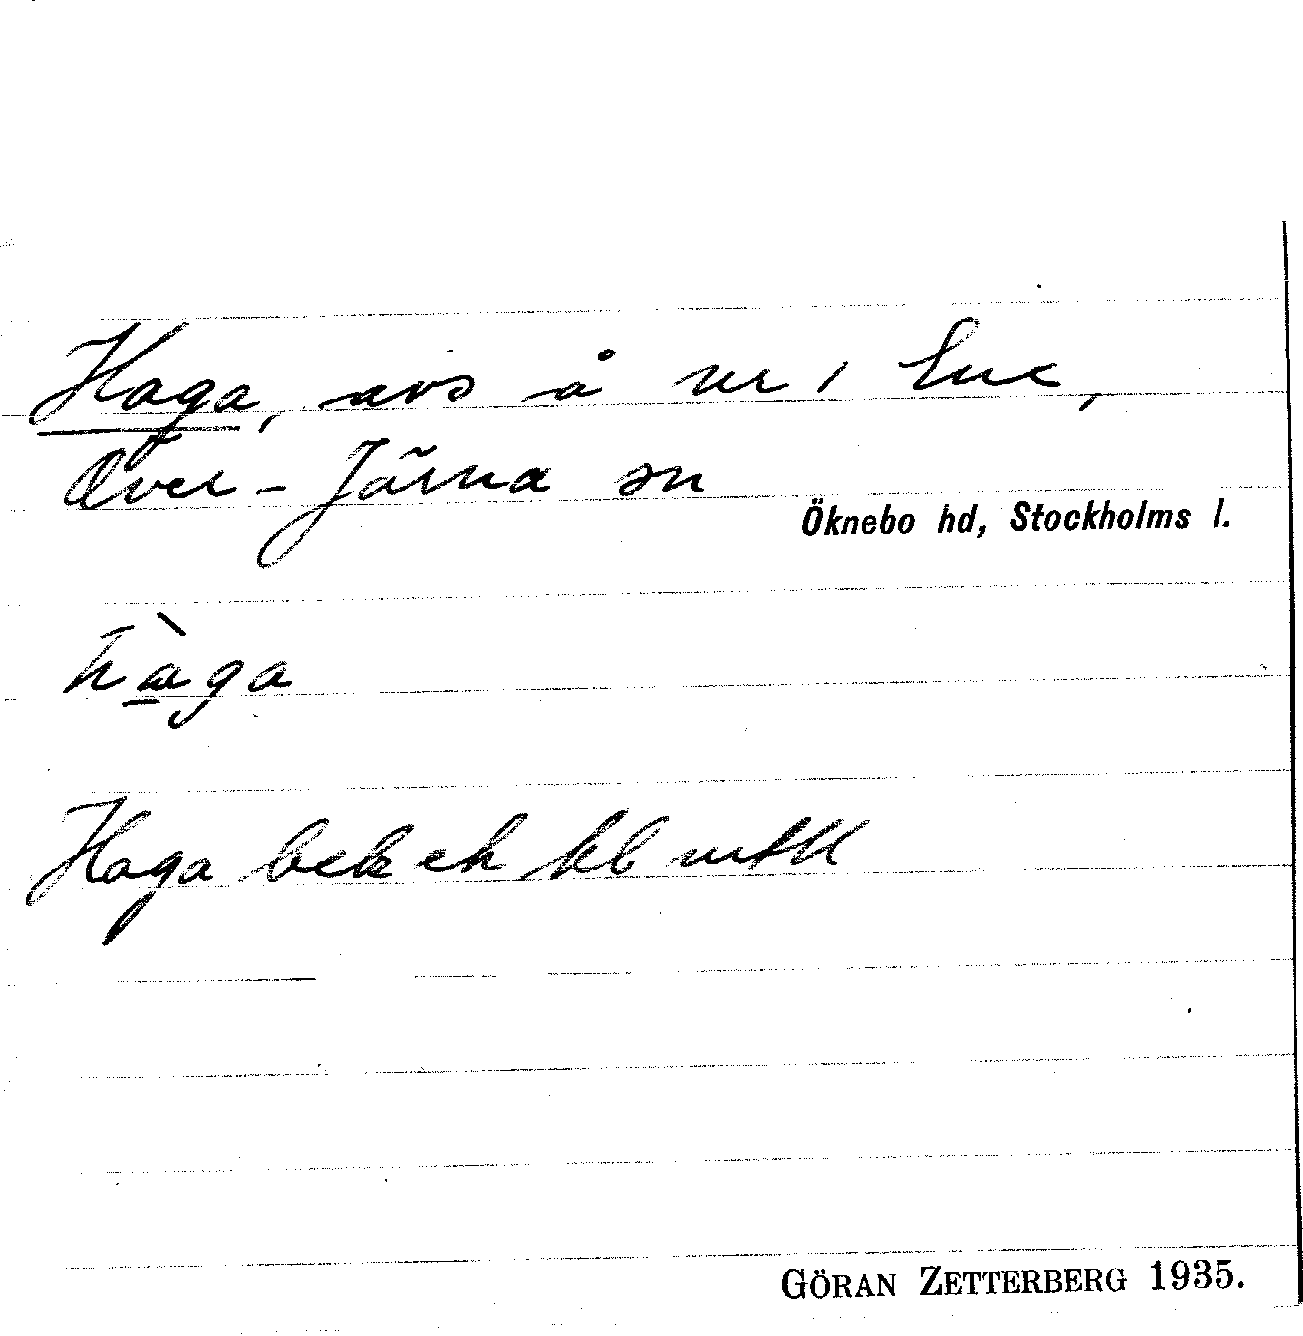 Haga, avs å nr 1 Ene,
Över-Järna sn
Öknebo hd, Stockholms l.
hàga
Haga bek ek kb mtll
GÖRAN ZETTERBERG 1935.